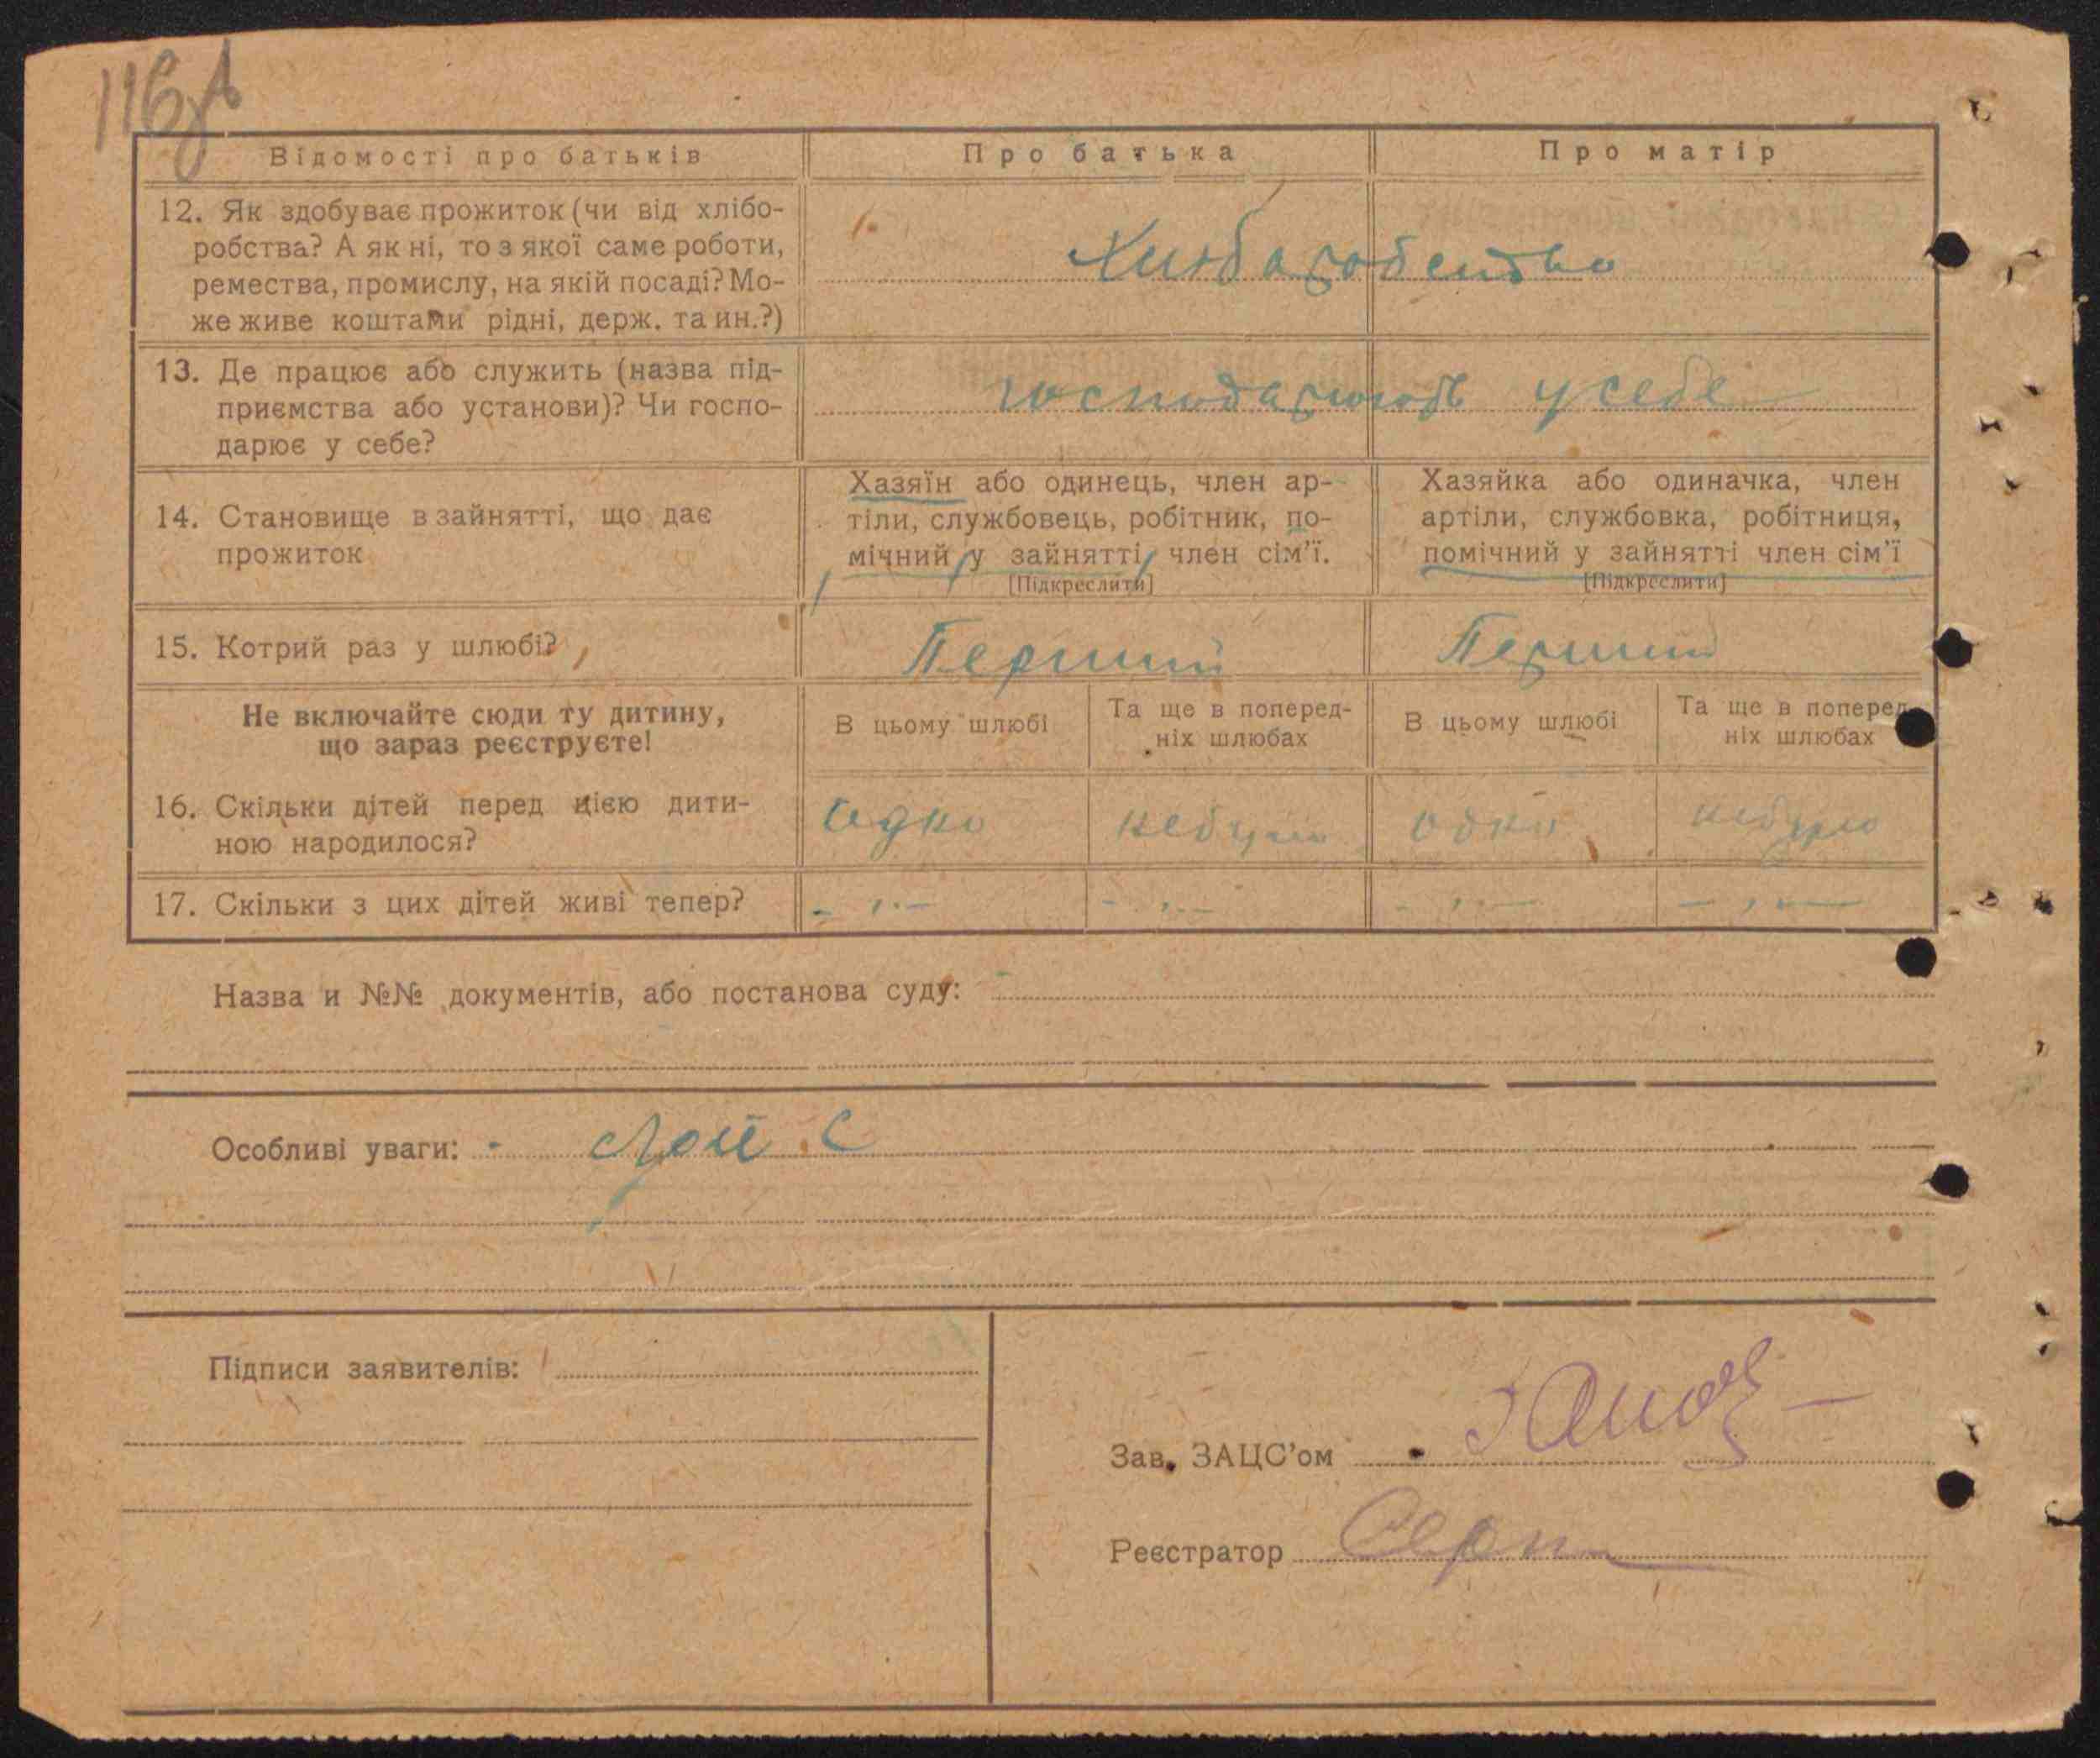 116
Відомості про батьків
Про батька
Про матір
12. Як здобуває прожиток (чи від хлібо-
робства? А як ні, то з якої саме роботи,
ремества, промислу, на якій посаді? Мо-
же живе коштами рідні, держ. та ин.?)
13. Де працює або служить (назва під-
приємства або установи)? Чи госпо-
дарює у себе?
господарюють у себе
14. Становище в зайнятті, що дає
прожиток
Хазяїн або одинець, член ар-
тіли, службовець, робітник, по-
мічний у зайнятті, член сім'ї.
[Підкреслити]
Хазяйка або одиначка, член
артіли, службовка, робітниця,
помічний у зайнятті член сім'ї
[Підкреслити]
15. Котрий раз у шлюбі?
Перший
Перший
Не включайте сюди ту дитину,
що зараз реєструєте!
В цьому шлюбі
Та ще в поперед-
ніх шлюбах
В цьому шлюбі
Та ще в поперед-
ніх шлюбах
16. Скільки дітей перед цією дити-
ною народилося?
одно
небуло
одно
небуло
17. Скільки з цих дітей живі тепер?
- „ -
- „ -
- „ -
- „ -
Назва и №№ документів, або постанова суду:
Особливі уваги:
Підписи заявителів:
Зав. ЗАЦС'ом
Реєстратор